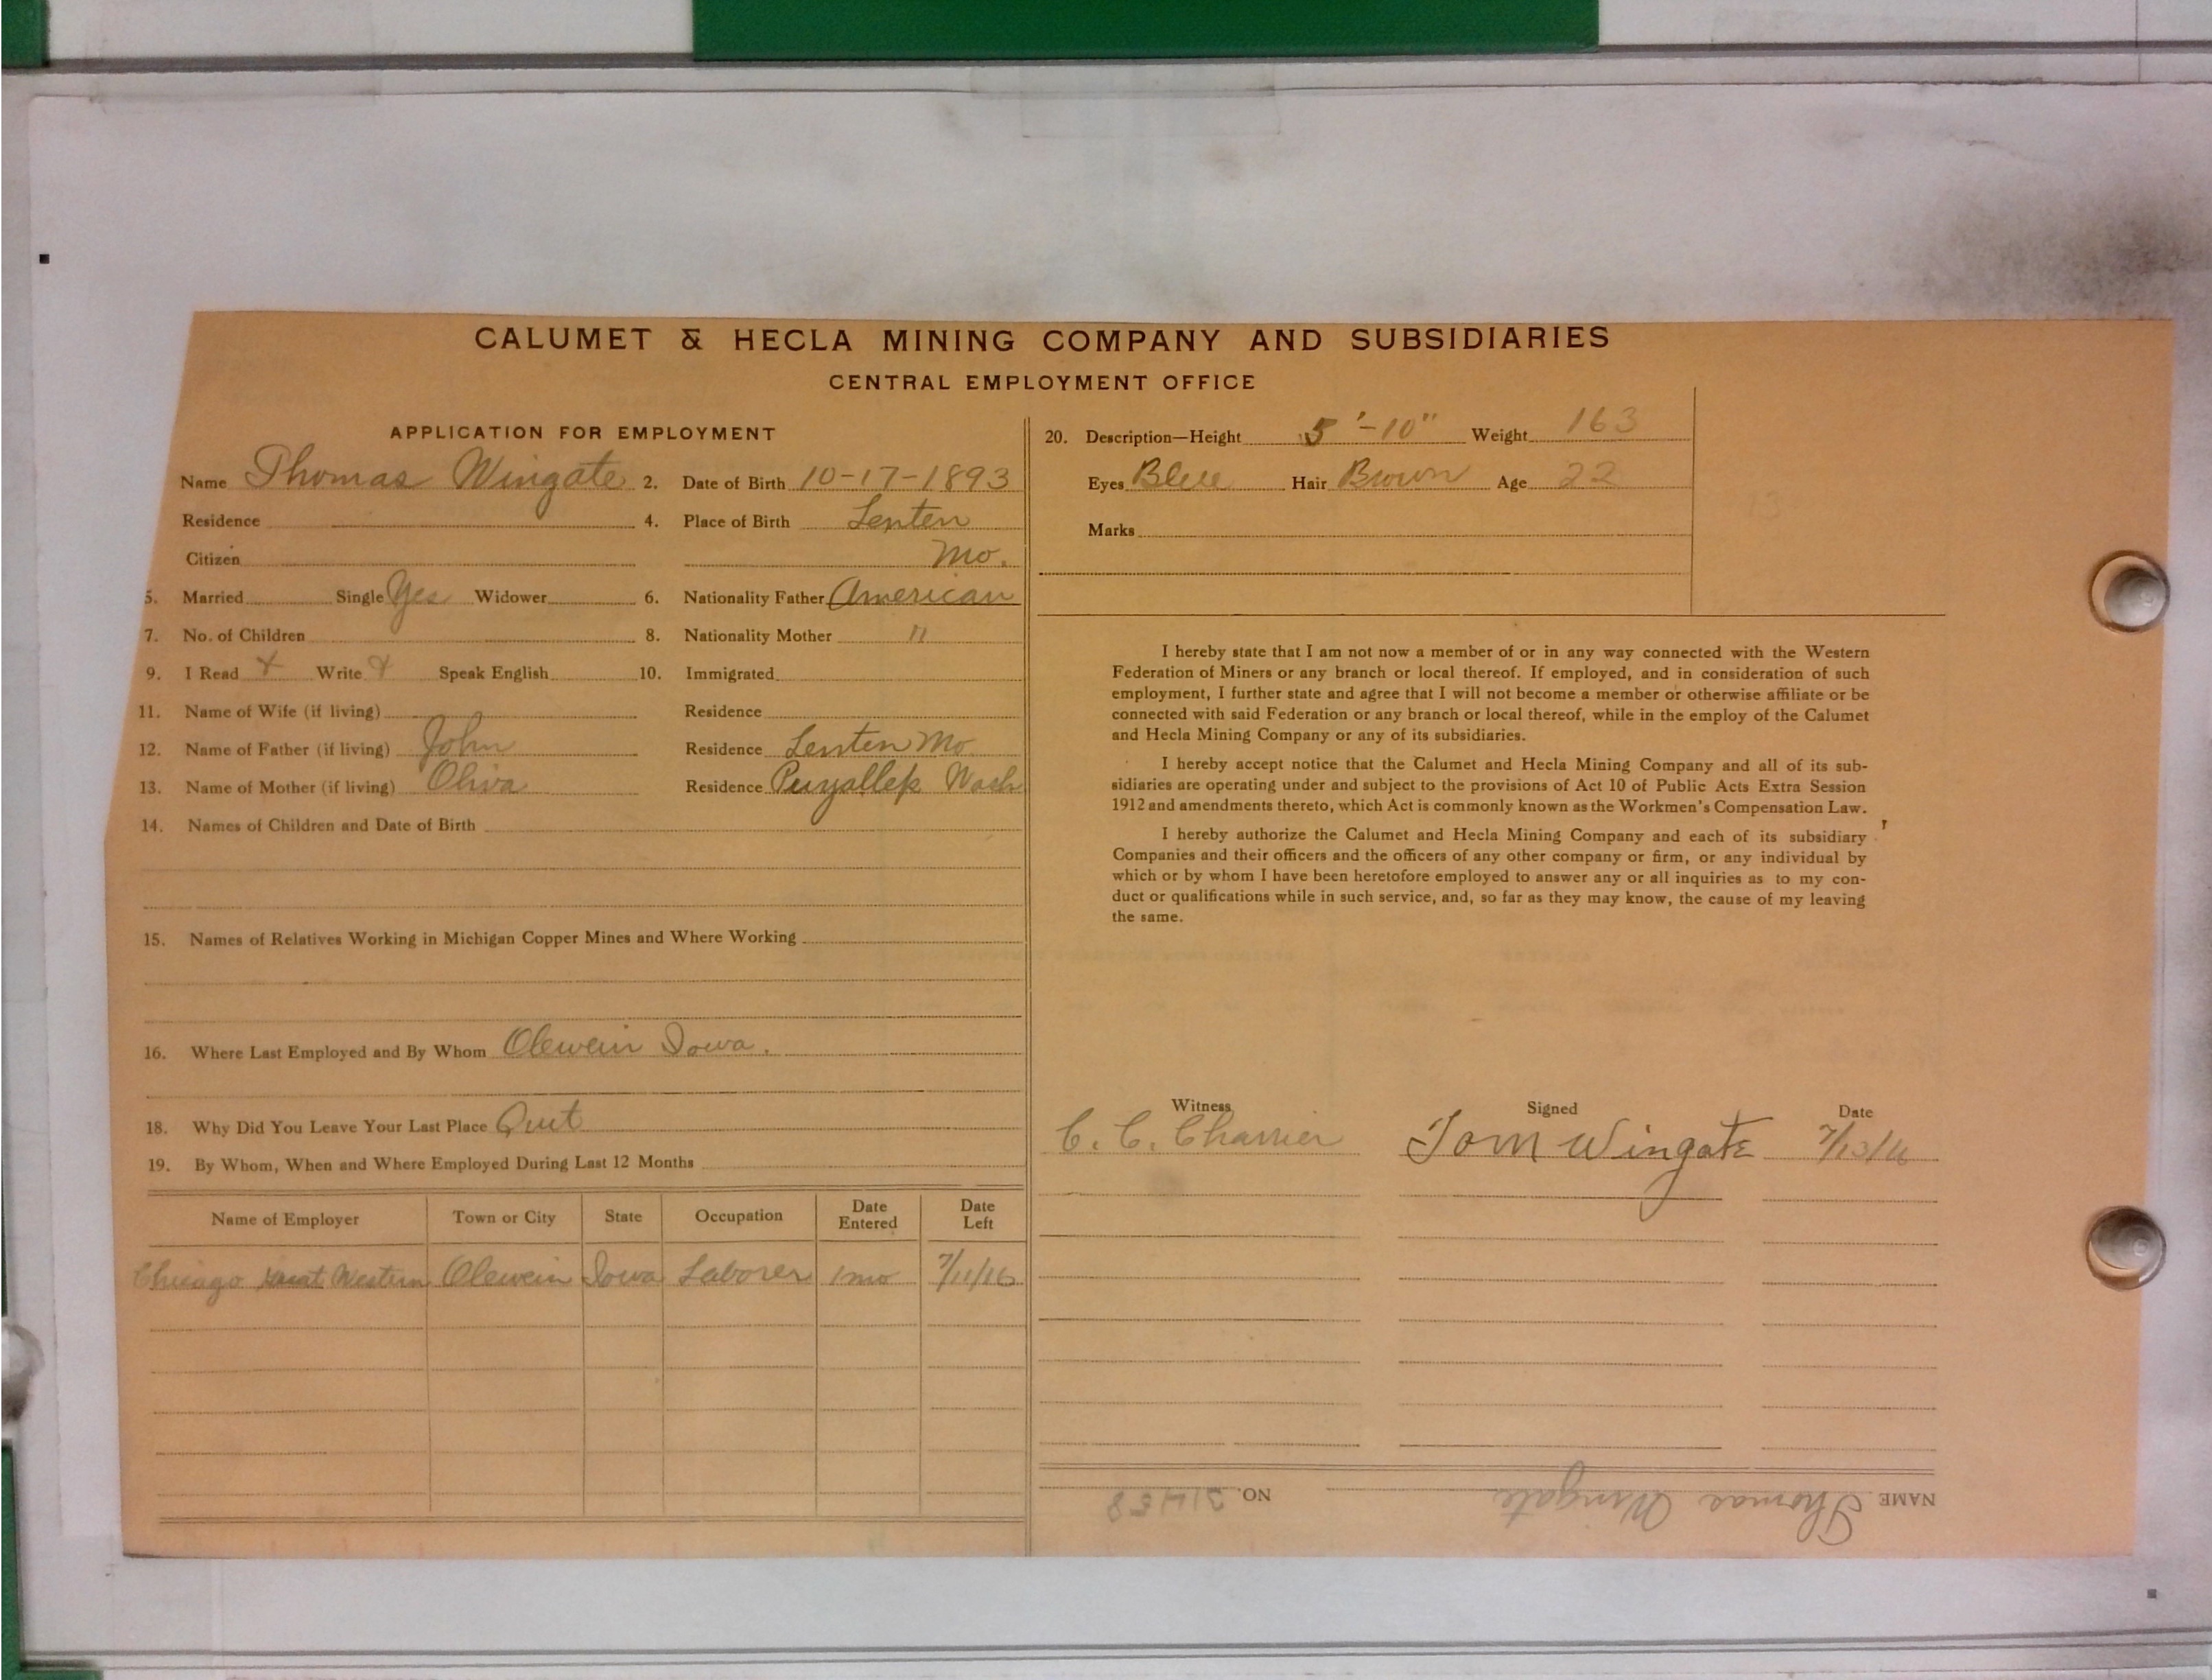 CALUMET & HECLA MINING COMPANY AND SUBSIDIARIES
CENTRAL EMPLOYMENT OFFICE
APPLICATION FOR EMPLOYMENT
Name Thomas Wingate 2. Date of Birth 10-17-1893
Residence 4. Place of Birth Lenten
Citizen Mo.
5. Married Single Yes Widower 6. Nationality Father American
7. No. of Children 8. Nationality Mother "
9. I Read x Write x Speak English 10. Immigrated
11. Name of Wife (if living) Residence
12. Name of Father (if living) John Residence Lenten Mo
13. Name of Mother (if living) Oliva Residence Puyallep Wash
14. Names of Children and Date of Birth
15. Names of Relatives Working in Michigan Copper Mines and Where Working
16. Where Last Employed and By Whom Olewein Iowa.
18. Why Did You Leave Your Last Place Quit
19. By Whom, When and Where Employed During Last 12 Months
Name of Employer Town or City State Occupation Date Entered Date Left
Chicago Great Western Olewein Iowa Laborer 1 mo 7/11/16
20. Description—Height 5'-10" Weight 163
Eyes Blue Hair Brown Age 22
Marks
I hereby state that I am not now a member of or in any way connected with the Western
Federation of Miners or any branch or local thereof. If employed, and in consideration of such
employment, I further state and agree that I will not become a member or otherwise affiliate or be
connected with said Federation or any branch or local thereof, while in the employ of the Calumet
and Hecla Mining Company or any of its subsidiaries.
I hereby accept notice that the Calumet and Hecla Mining Company and all of its sub-
sidiaries are operating under and subject to the provisions of Act 10 of Public Acts Extra Session
1912 and amendments thereto, which Act is commonly known as the Workmen's Compensation Law.
I hereby authorize the Calumet and Hecla Mining Company and each of its subsidiary
Companies and their officers and the officers of any other company or firm, or any individual by
which or by whom I have been heretofore employed to answer any or all inquiries as to my con-
duct or qualifications while in such service, and, so far as they may know, the cause of my leaving
the same.
Witness Signed Date
C. C. Charrier Tom Wingate 7/13/16
NAME Thomas Wingate NO. 31458